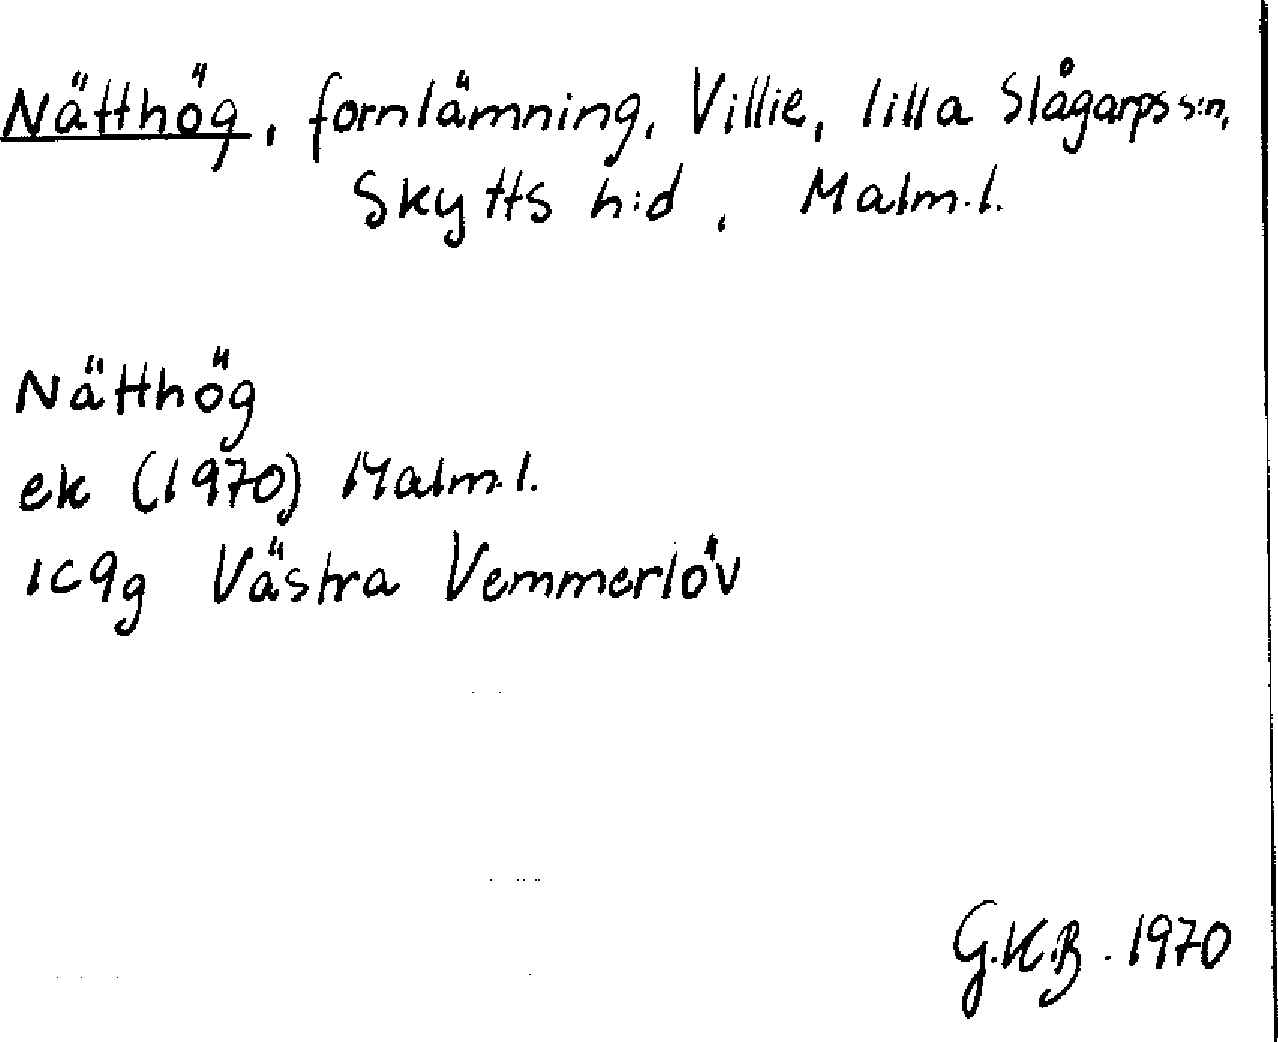 Nätthög, fornlämning, Villie, lilla Slågarps s:n,
Skytts h:d, Malm.l.
Nätthög
ek (1970) Malm.l.
1C9g Västra Vemmerlöv
G.K.B. 1970